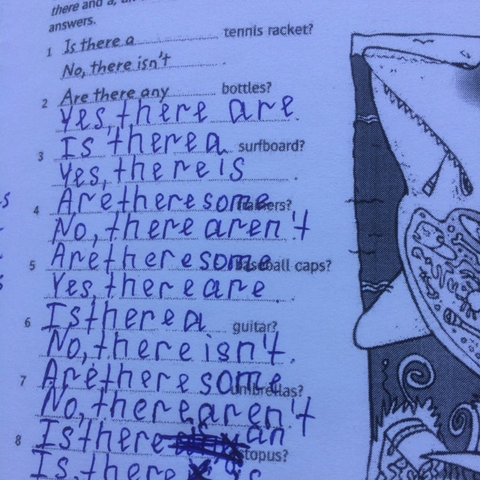 there and a, an
answers.
1 Is there a tennis racket?
No, there isn't .
2 Are there any bottles?
Yes, there are.
3 Is there a surfboard?
Yes, there is .
4 Are there some
No, there aren't
5 Are there some baseball caps?
Yes, there are .
6 Is there a guitar?
No, there isn't.
7 Are there some umbrellas?
No, there aren't
8 Is there an
Is there is